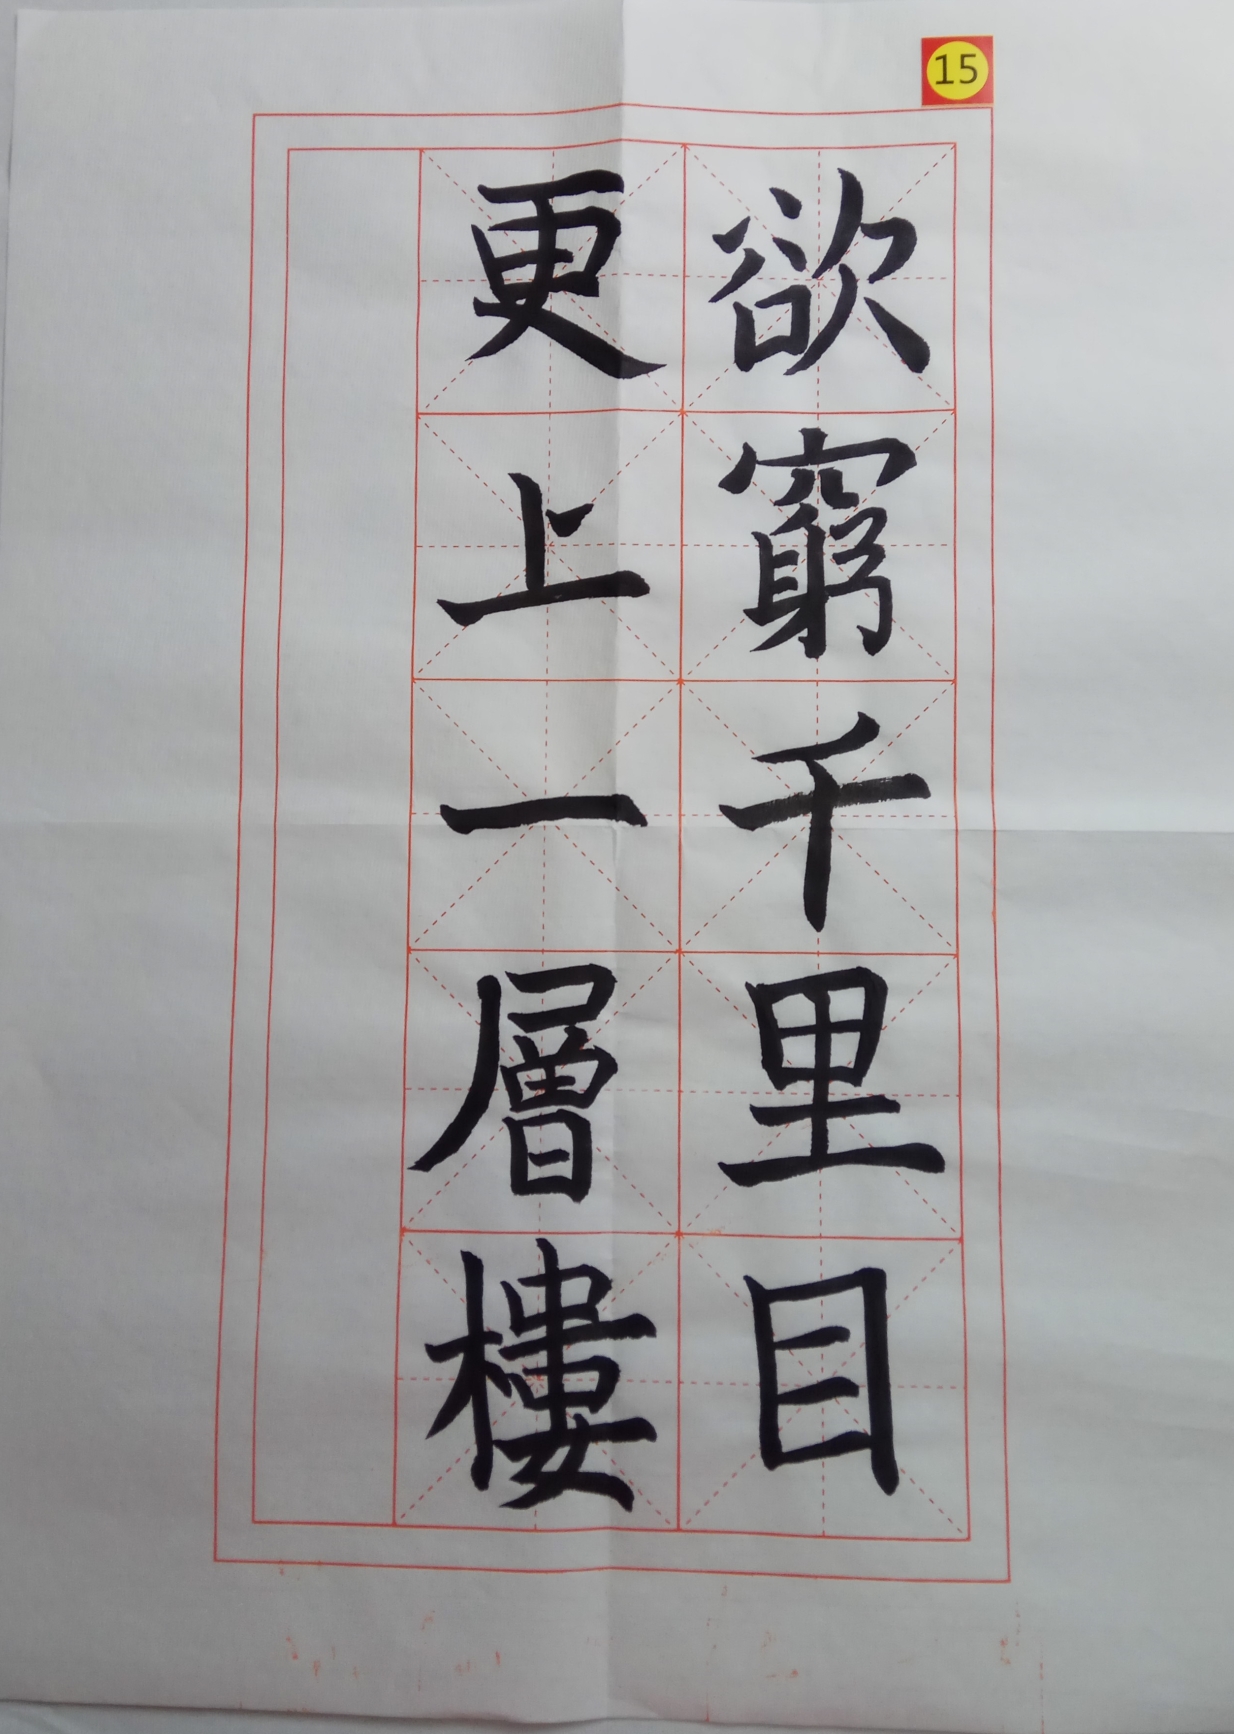 15
欲窮千里目
更上一層樓